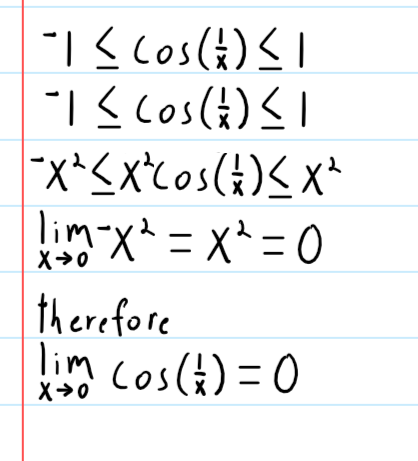 -1 ≤ cos(1/x) ≤ 1
-1 ≤ cos(1/x) ≤ 1
-x² ≤ x²cos(1/x) ≤ x²
lim x→0 -x² = x² = 0
therefore
lim x→0 cos(1/x) = 0